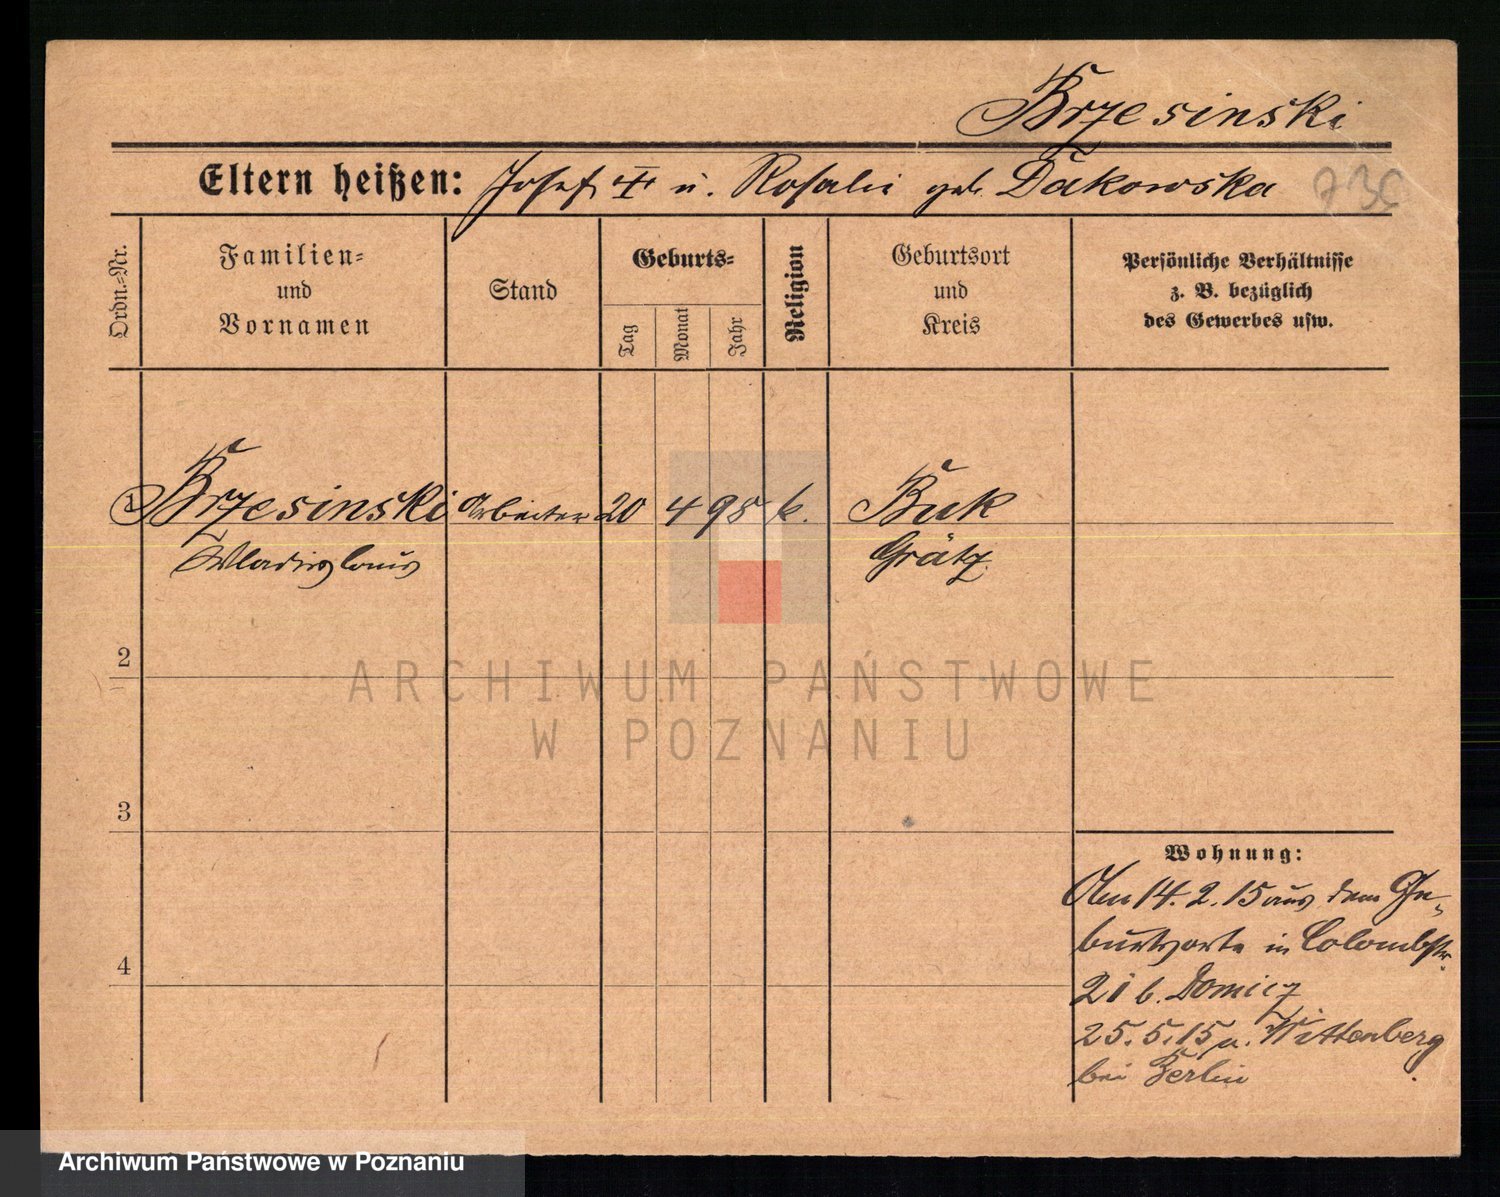 Brzesinski
Eltern heißen: Josef ☩ u. Rosalie geb. Dakowska
73
Ordn.-Nr.
Familien-
und
Vornamen
Stand
Geburts-
Tag
Monat
Jahr
Religion
Geburtsort
und
Kreis
Persönliche Verhältnisse
z. B. bezüglich
des Gewerbes usw.
1 Brzesinski Arbeiter 20 4 98 k. Buk
Wladislaus Grätz
2
ARCHIWUM PAŃSTWOWE
W POZNANIU
3
Wohnung:
Am 14. 2. 15 aus dem Ge-
burtsorte in Colombstr.
21 b. Domicz
25. 5. 15 n. Wittenberg
bei Berlin
4
Archiwum Państwowe w Poznaniu